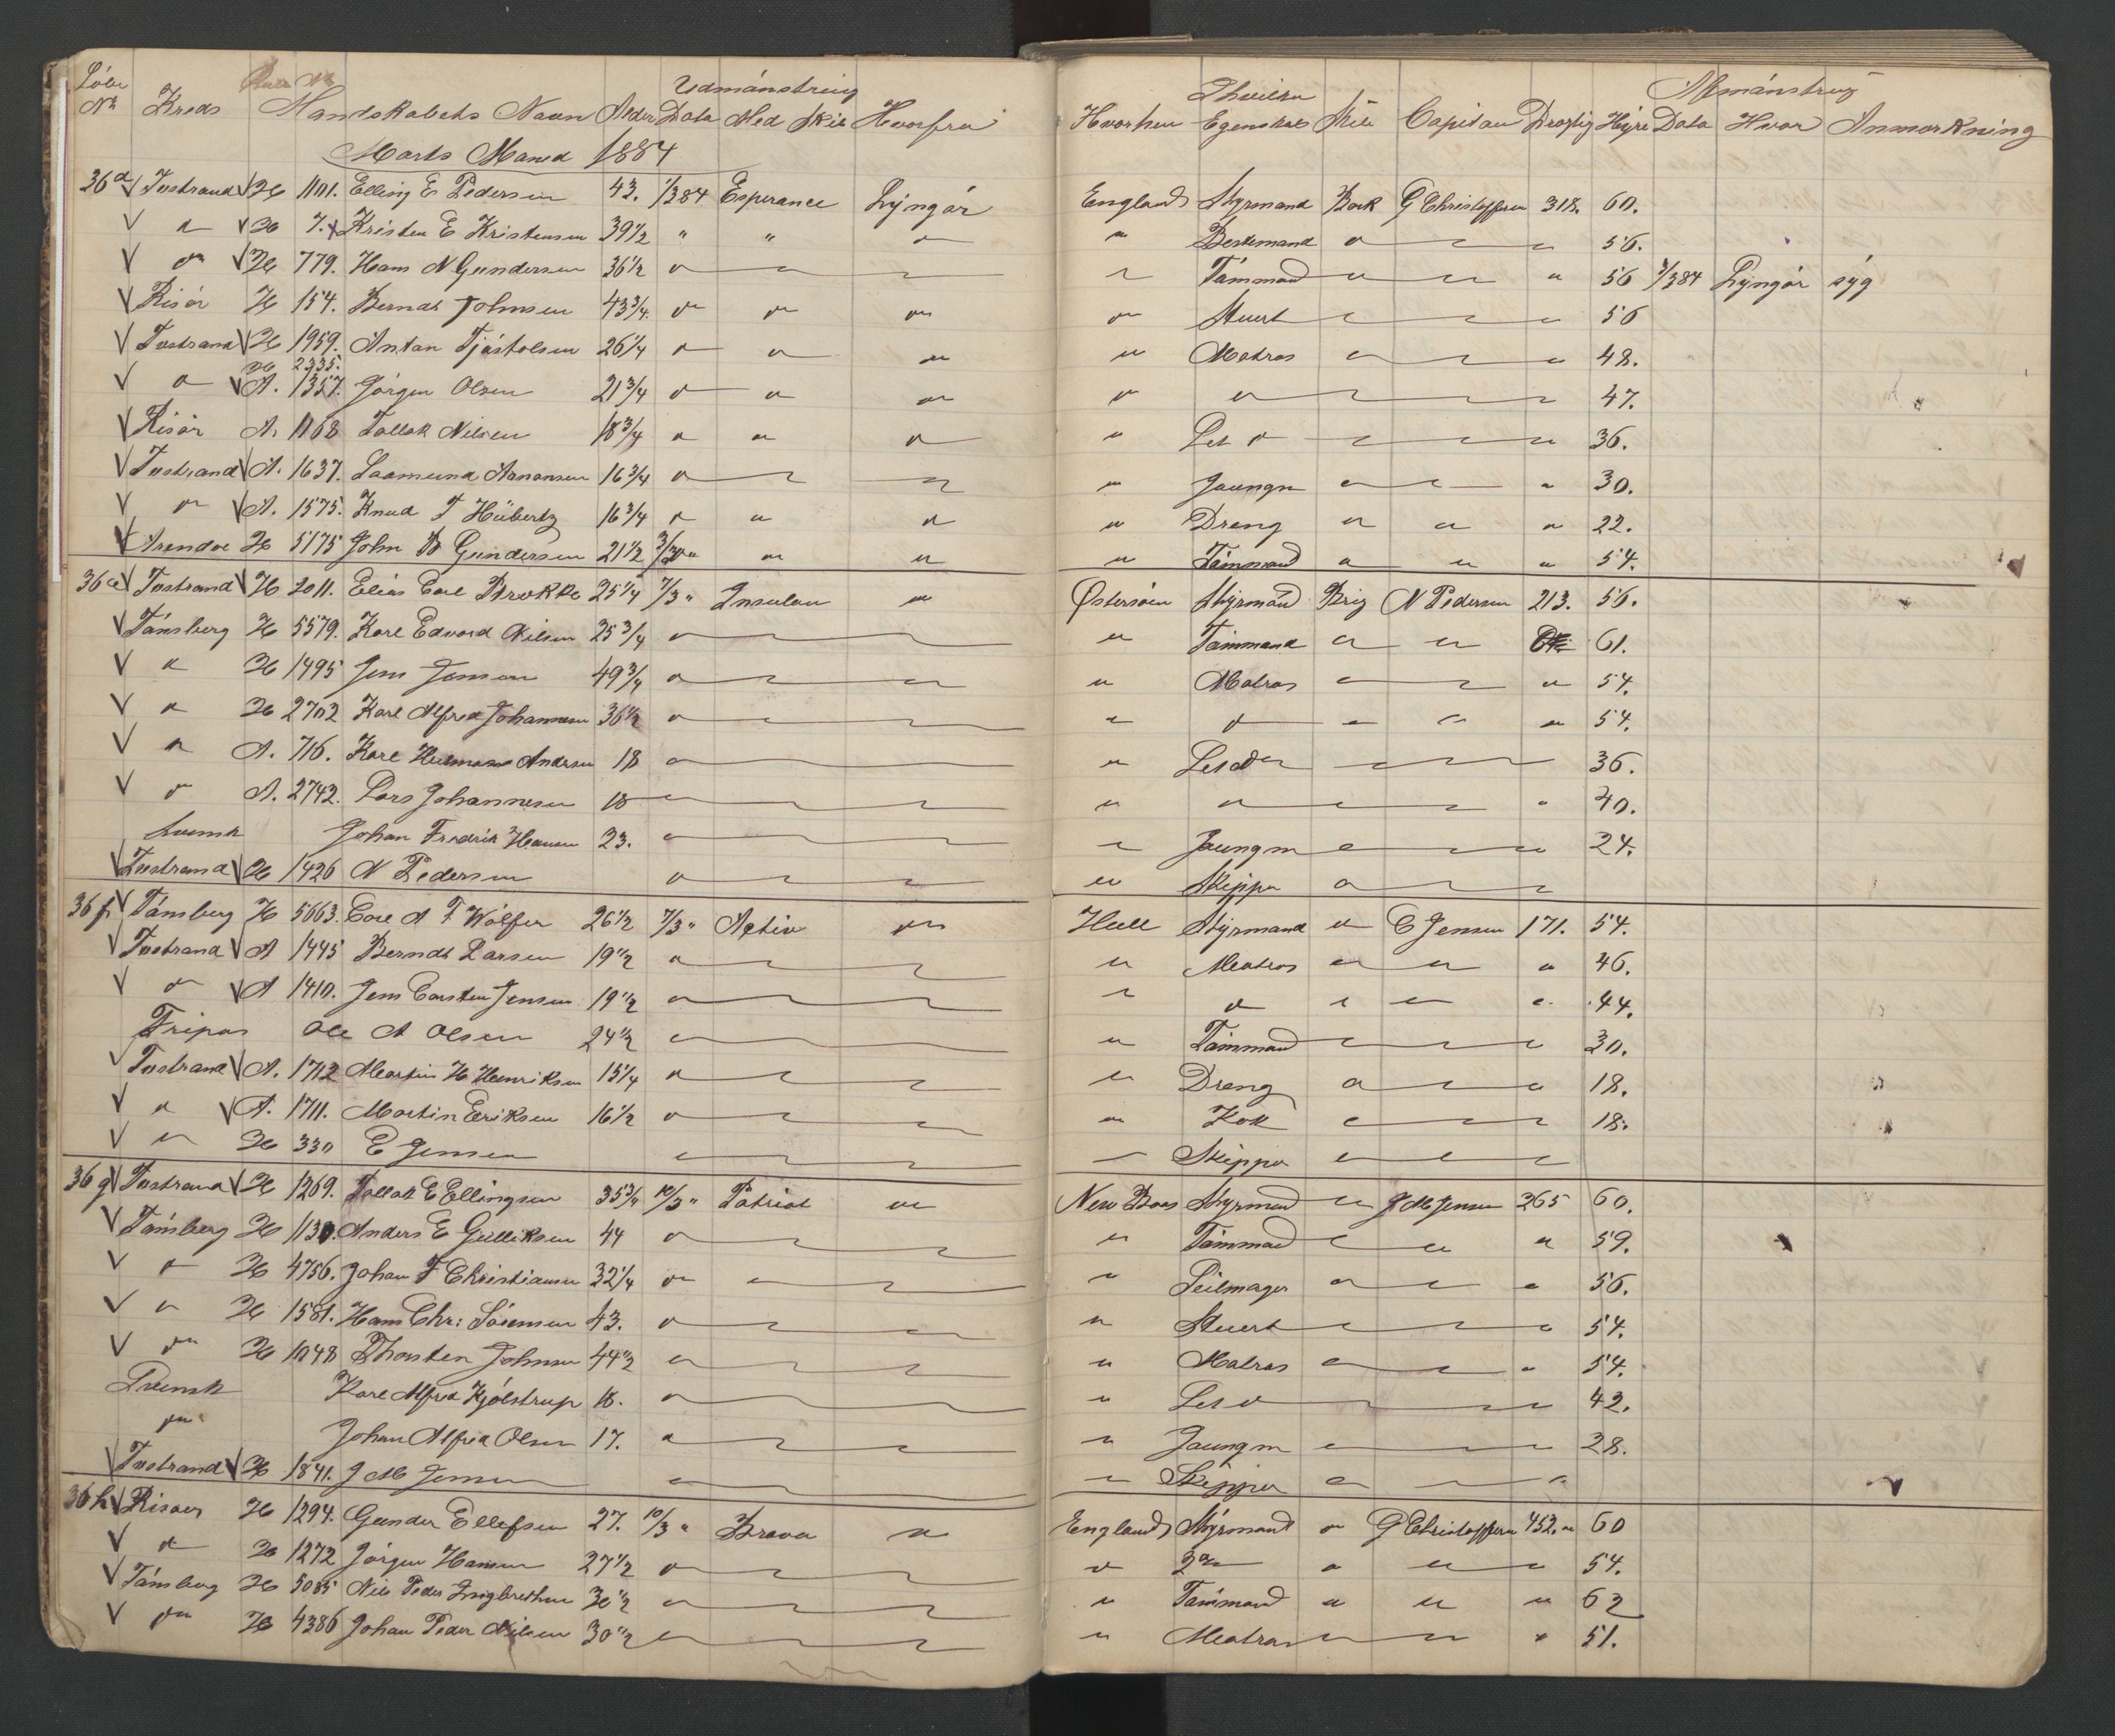 Løbe Rulle Nr Udmønstring Ihvilken Afmønstring
Nr Kreds Mandskabets Navn Alder Data Med Skib Hvorfra Hvorhen Egenskab Skib Capitan Drægtig Hyre Data Hvor Anmærkning
Marts Maned 1884
36d Tvestrand H 1101. Elling E Pedersen 43. 1/3 84 Esperance Lyngør England Styrmand Bark G Christoffersen 318. 60.
" H 7. Kristen E Kristensen 39 1/2 " " " " Bestemand " " " 56.
" H 779. Hans N Gundersen 36 1/2 " " " " Tømmand " " " 56 3/3 84 Lyngør syg
Risør H 154. Berndt Johnsen 43 3/4 " " " " Stuert " " " 56
Tvestrand H 1959. Antan Tjøstolsen 26 1/4 " " " " Matros " " " 48.
H 2335.
" A. 1357. Jørgen Olsen 21 3/4 " " " " " " " " 47.
Risør A. 1168 Tallak Nilsen 18 3/4 " " " " Let " " " " 36.
Tvestrand A. 1637. Laamund Aanonsen 16 3/4 " " " " Jaungm " " " 30.
" A. 1575. Knud T Hübertz 16 3/4 " " " " Dreng " " " 22.
Arendae H 5175 John B Gundersen 21 1/2 3/3 " " " " Tømmand " " " 54.
36e Tvestrand H 2011. Elias Carl Brokke 25 1/4 7/3 " Insulan " Østersøen Styrmand Brig N Pedersen 213. 56.
Tønsberg H 5579. Karl Edvard Nilsen 25 3/4 " " " " Tømmand " " 61.
" H 1495 Jens Jensen 49 3/4 " " " " Matros " " " 54.
" H 2702 Karl Alfred Johannesen 36 1/2 " " " " " " " " 54.
" A. 716. Karl Hermann Andersen 18 " " " " Let " " " 36.
" A. 2742. Lars Johannesen 18 " " " " " " " " 40.
Svensk Johan Fredrik Hansen 23. " " " " Jaungm " " " 24.
Tvestrand H 1426 N Pedersen " " " " Skipper " " "
36f Tønsberg H 5663. Carl A F Wølfer 26 1/2 7/3 " Activ " Hull Styrmand " E Jensen 171. 54.
Tvestrand A 1445 Berndt Larsen 19 1/2 " " " " Matros " " " 46.
" A 1410. Jens Carsten Jensen 19 1/2 " " " " " " " " 44.
Fripas Ole A Olsen 24 1/2 " " " " Tømmand " " " 30.
Tvestrand A. 1712 Martin H Henriksen 15 1/4 " " " " Dreng " " " 18.
" A. 1711. Martin Eriksen 16 1/2 " " " " Kok " " " 18.
" H 330 E Jensen " " " " Skipper " " "
36g Tvestrand H 1269. Tallak E Ellingsen 35 3/4 10/3 " Patriot " New Boss Styrmand " J M Jensen 265 60.
Tønsberg H 1130. Anders E Gulliksen 44 " " " " Tømmand " " " 59.
" H 4756. Johan F Christiansen 32 1/4 " " " " Seilmager " " " 56.
" H 1581. Hans Chr: Sørensen 43. " " " " Stuert " " " 54.
" H 1048 Thorsten Johnsen 44 1/2 " " " " Matros " " " 54.
Svensk Karl Alfred Kjølstrup 18. " " " " Let " " " " 42.
" Johan Alfred Olsen 17. " " " " Jaungm " " " 28.
Tvestrand H 1841. J M Jensen " " " " Skipper " " "
36h Risoer H 1294. Gunder Ellefsen 27. 10/3 " Brava " England Styrmand " G Christoffersen 452. 60
" H 1272 Jørgen Hansen 27 1/2 " " " " 2den " " " 54.
Tønsberg H 5085 Nils Peder Ingbrethsen 30 1/2 " " " " Tømmand " " " 62
" H 4386 Johan Peder Nilsen 30 1/2 " " " " Matros " " " 51.